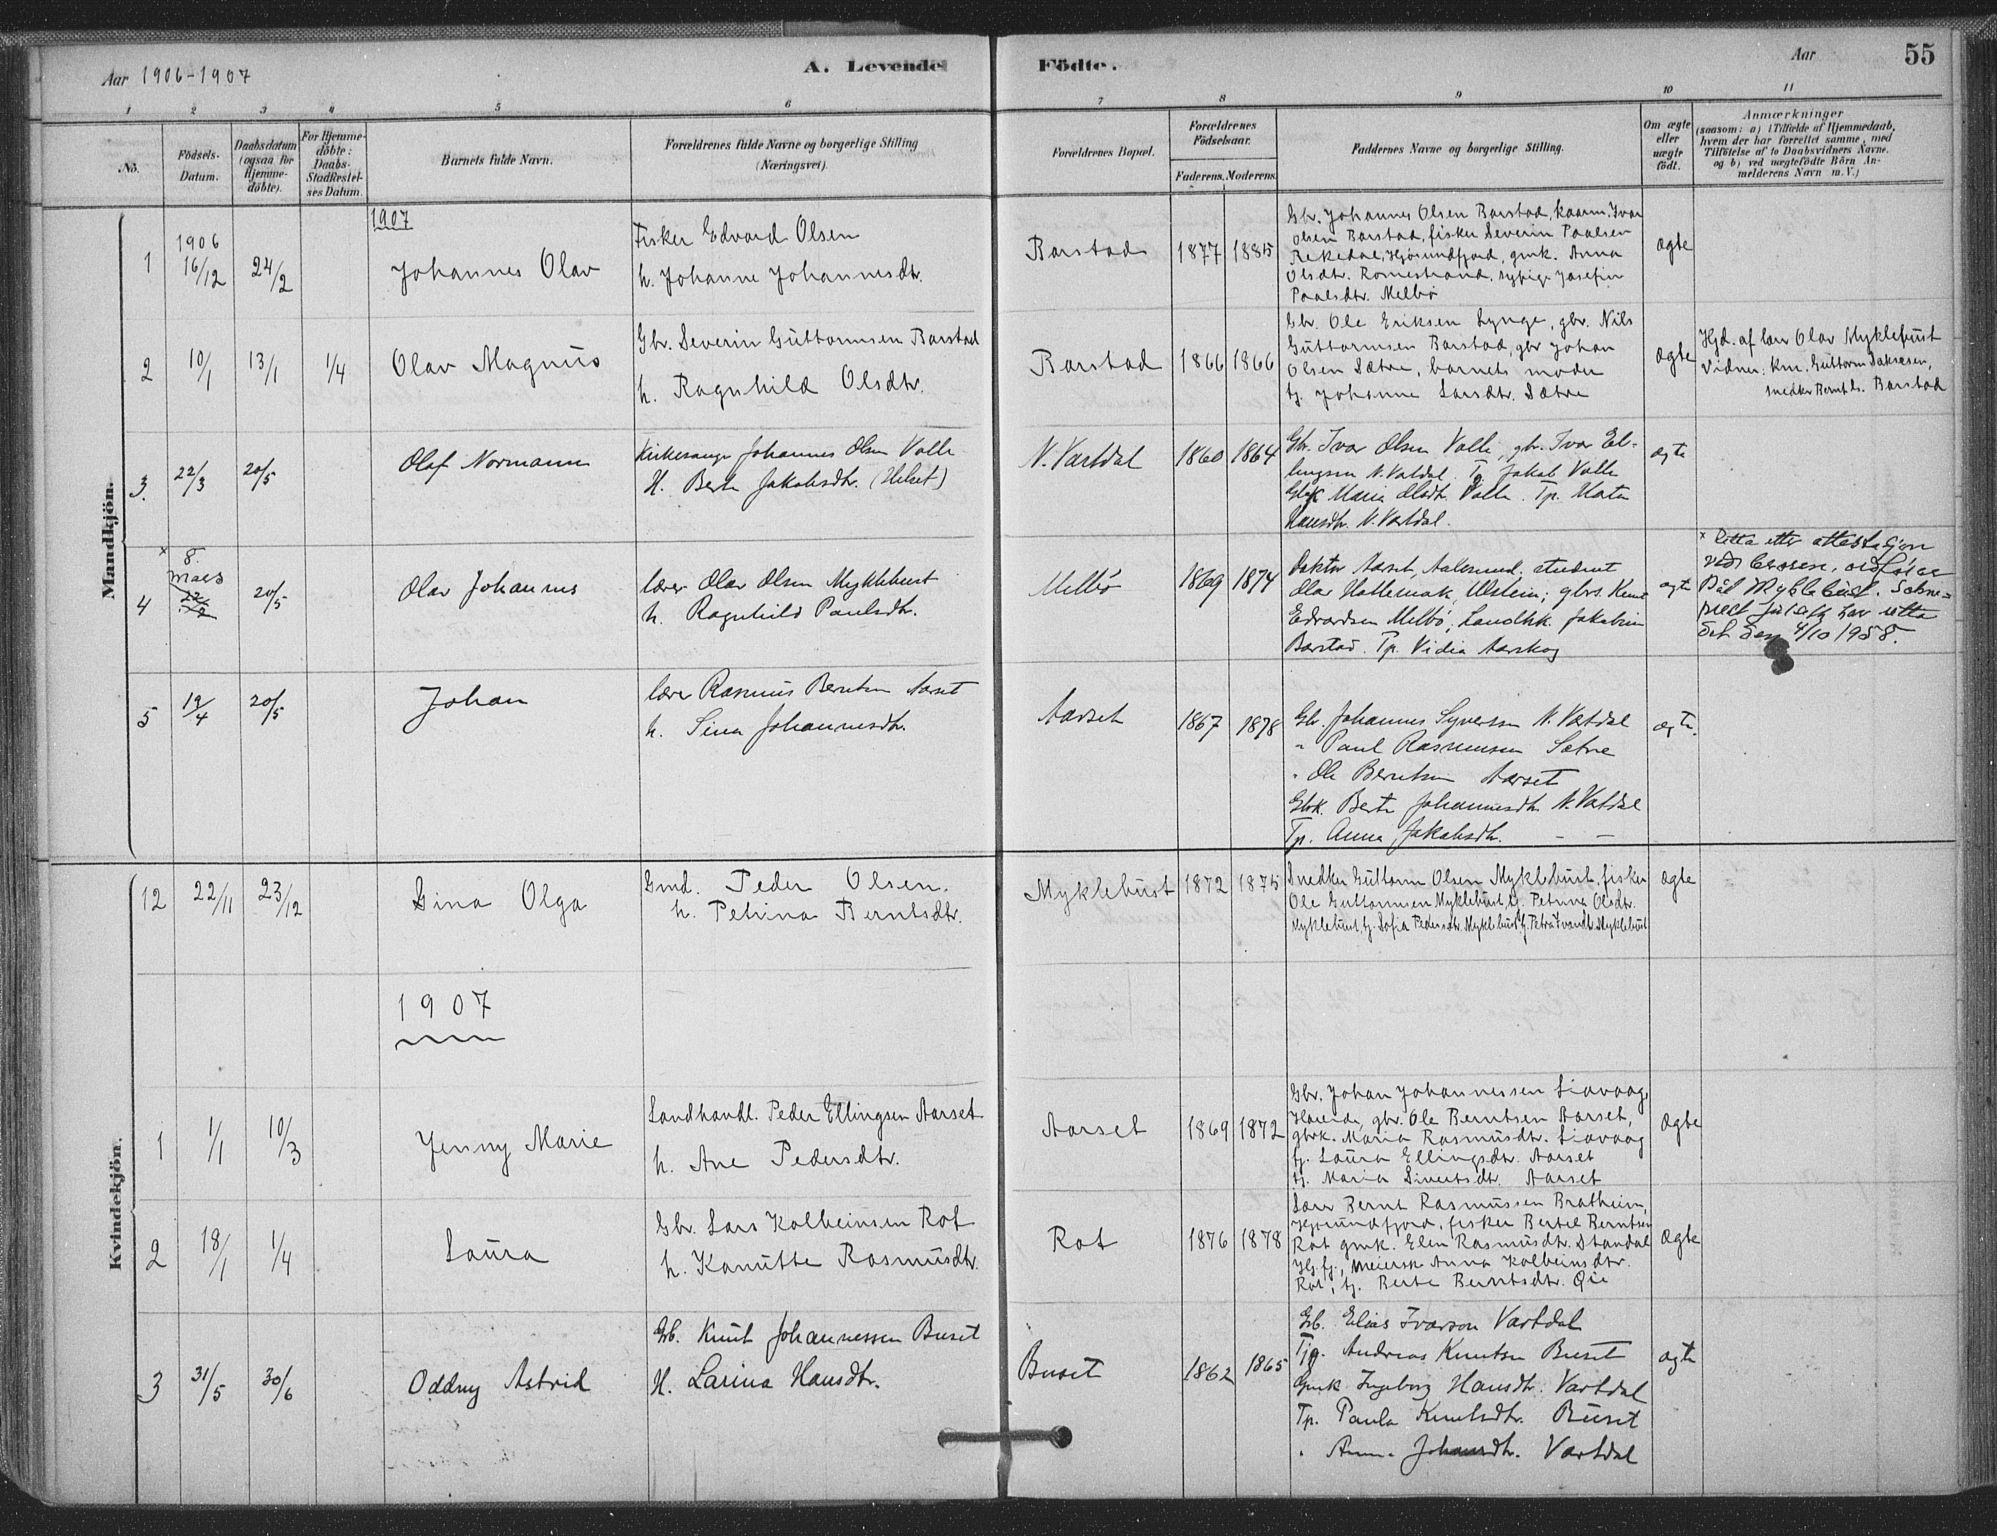 Aar 1906-1907
A. Levende Födte.
Aar
55
1 2 3 4 5 6 7 8 9 10 11
No.
Födsels-Datum.
Daabsdatum (ogsaa for Hjemme-döbte).
For Hjemme-döbte: Daabs-Stadfæstel-ses Datum.
Barnets fulde Navn.
Forældrenes fulde Navne og borgerlige Stilling (Næringsvei).
Forældrenes Bopæl.
Forældrenes Födselsaar.
Faderens. Moderens.
Faddernes Navne og borgerlige Stilling.
Om ægte eller uægte födt.
Anmærkninger
(saasom: a) i Tilfælde af Hjemmedaab,
hvem der har forrettet samme, med
Tilföielse af to Daabsvidners Navne.
og b) ved uægtefödte Börn An-
melderens Navn m. V.)
Mandkjön.
1907
1
1906
16/12
24/2
Johannes Olav
Fisker Edvard Olsen
h. Johanne Johannesdtr.
Barstad
1877
1885
Gbr. Johannes Olsen Barstad, kaarm. Ivar
Olsen Barstad, fisker Severin Paalsen
Rekedal, Hjörundfjord, gmk. Anna
Olsdtr. Romestrand, Josefin
Paalsdtr. Melbö
ægte
2
10/1
13/1
1/4
Olav Magnus
Gbr. Severin Guttormsen Barstad
h. Ragnhild Olsdtr.
Barstad
1866
1866
Gbr. Ole Eriksen Lynge, gbr. Nils
Guttormsen Barstad, gbr Johan
Olsen Sætre, barnets moder
tj. Johanne Larsdtr. Sætre
ægte
Hjd. af lærer Olav Myklebust
Vidner: Guttorm
snedker Bernt Barstad
3.
22/3
20/5
Olaf Normann
Kirkesanger Johannes Olsen Valle
H. Berte Jakobsdtr. (Helset)
N. Vartdal
1860
1864
Gbr. Ivar Olsen Valle, gbr. Ivar El-
lingsen N. Vatdal, Tg. Jakob Valle
Gbk Marie Olsdtr. Valle. Tp. Marta
Hansdtr. N. Vartdal.
ægte
4
x 8. mars
22/2
20/5
Olav Johannes
lærer Olav Olsen Myklebust
h. Ragnhild Paulsdtr.
Melbö
1869
1874
Doktor Aarset, Aalesund. student
Olav Hattemak, Ulstein; gbrs. Knut
Edvardsen Melbö, Landhk. Jakobine
Barstad. Tp. Vidia Aarskog
ægte
x Retta etter attestasjon
Pål Myklebust. Sokne-
prest har retta
det den 4/10 1958.
5
19/4
20/5
Johan
lærer Rasmus Berntsen Aarset
h. Sina Johannesdtr.
Aarset
1867
1878
Gb. Johannes Syversen N. Vatdal
" Paul Rasmussen Sætre
" Ole Berntsen Aarset
Gbk. Berte Johannesdtr N. Vatdal
Tp. Anna Jakobsdtr. — —
ægte.
Kvindekjön.
12
22/11
23/12
Gina Olga
Gmd. Peder Olsen.
h. Petrina Berntsdtr.
Myklebust
1872
1875
Snedker Guttorm Olsen Myklebust, fisker
Ole Guttormsen Myklebust, tj. Petrine Olsdtr.
Myklebust, tj. Sofia Pedersdtr. Myklebust, tj. Petra Ivarsdtr. Myklebust
ægte
1907
1
1/1
10/3
Jenny Marie
Landhandl. Peder Ellingsen Aarset
h. Ane Pedersdtr.
Aarset
1869
1872
Gbr. Johan Johannessen Liavaag,
Hareide, gbr. Ole Berntsen Aarset,
gbrk. Maria Rasmusdtr. Liavaag
tj. Laura Ellingsdtr. Aarset
tj. Maria Sivertsdtr. Aarset
ægte
2
18/1
1/4
Laura
Gbr. Lars Kolbeinsen Rot
h. Kanutte Rasmusdtr.
Rot
1876
1878
Lærer Bernt Rasmussen Bratheim,
Hjörundfjord, fisker Bertel Berntsen
Rot gmk. Elen Rasmusdtr. Standal
Hj.fj., meiersk Anna Kolbeinsdtr.
Rot, tj. Berte Berntsdtr. Øie
ægte
3
31/5
30/6
Oddny Astrid
Gb. Knut Johannessen Buset
H. Larina Hansdtr.
Buset
1862
1865
Gb. Elias Ivarson Vartdal
Tjg. Andreas Knutsen Buset
Gmk Ingeborg Hansdtr. Vartdal
Tp. Paula Knutsdtr. Buset
" Anna Johansdtr. Vartdal
ægte